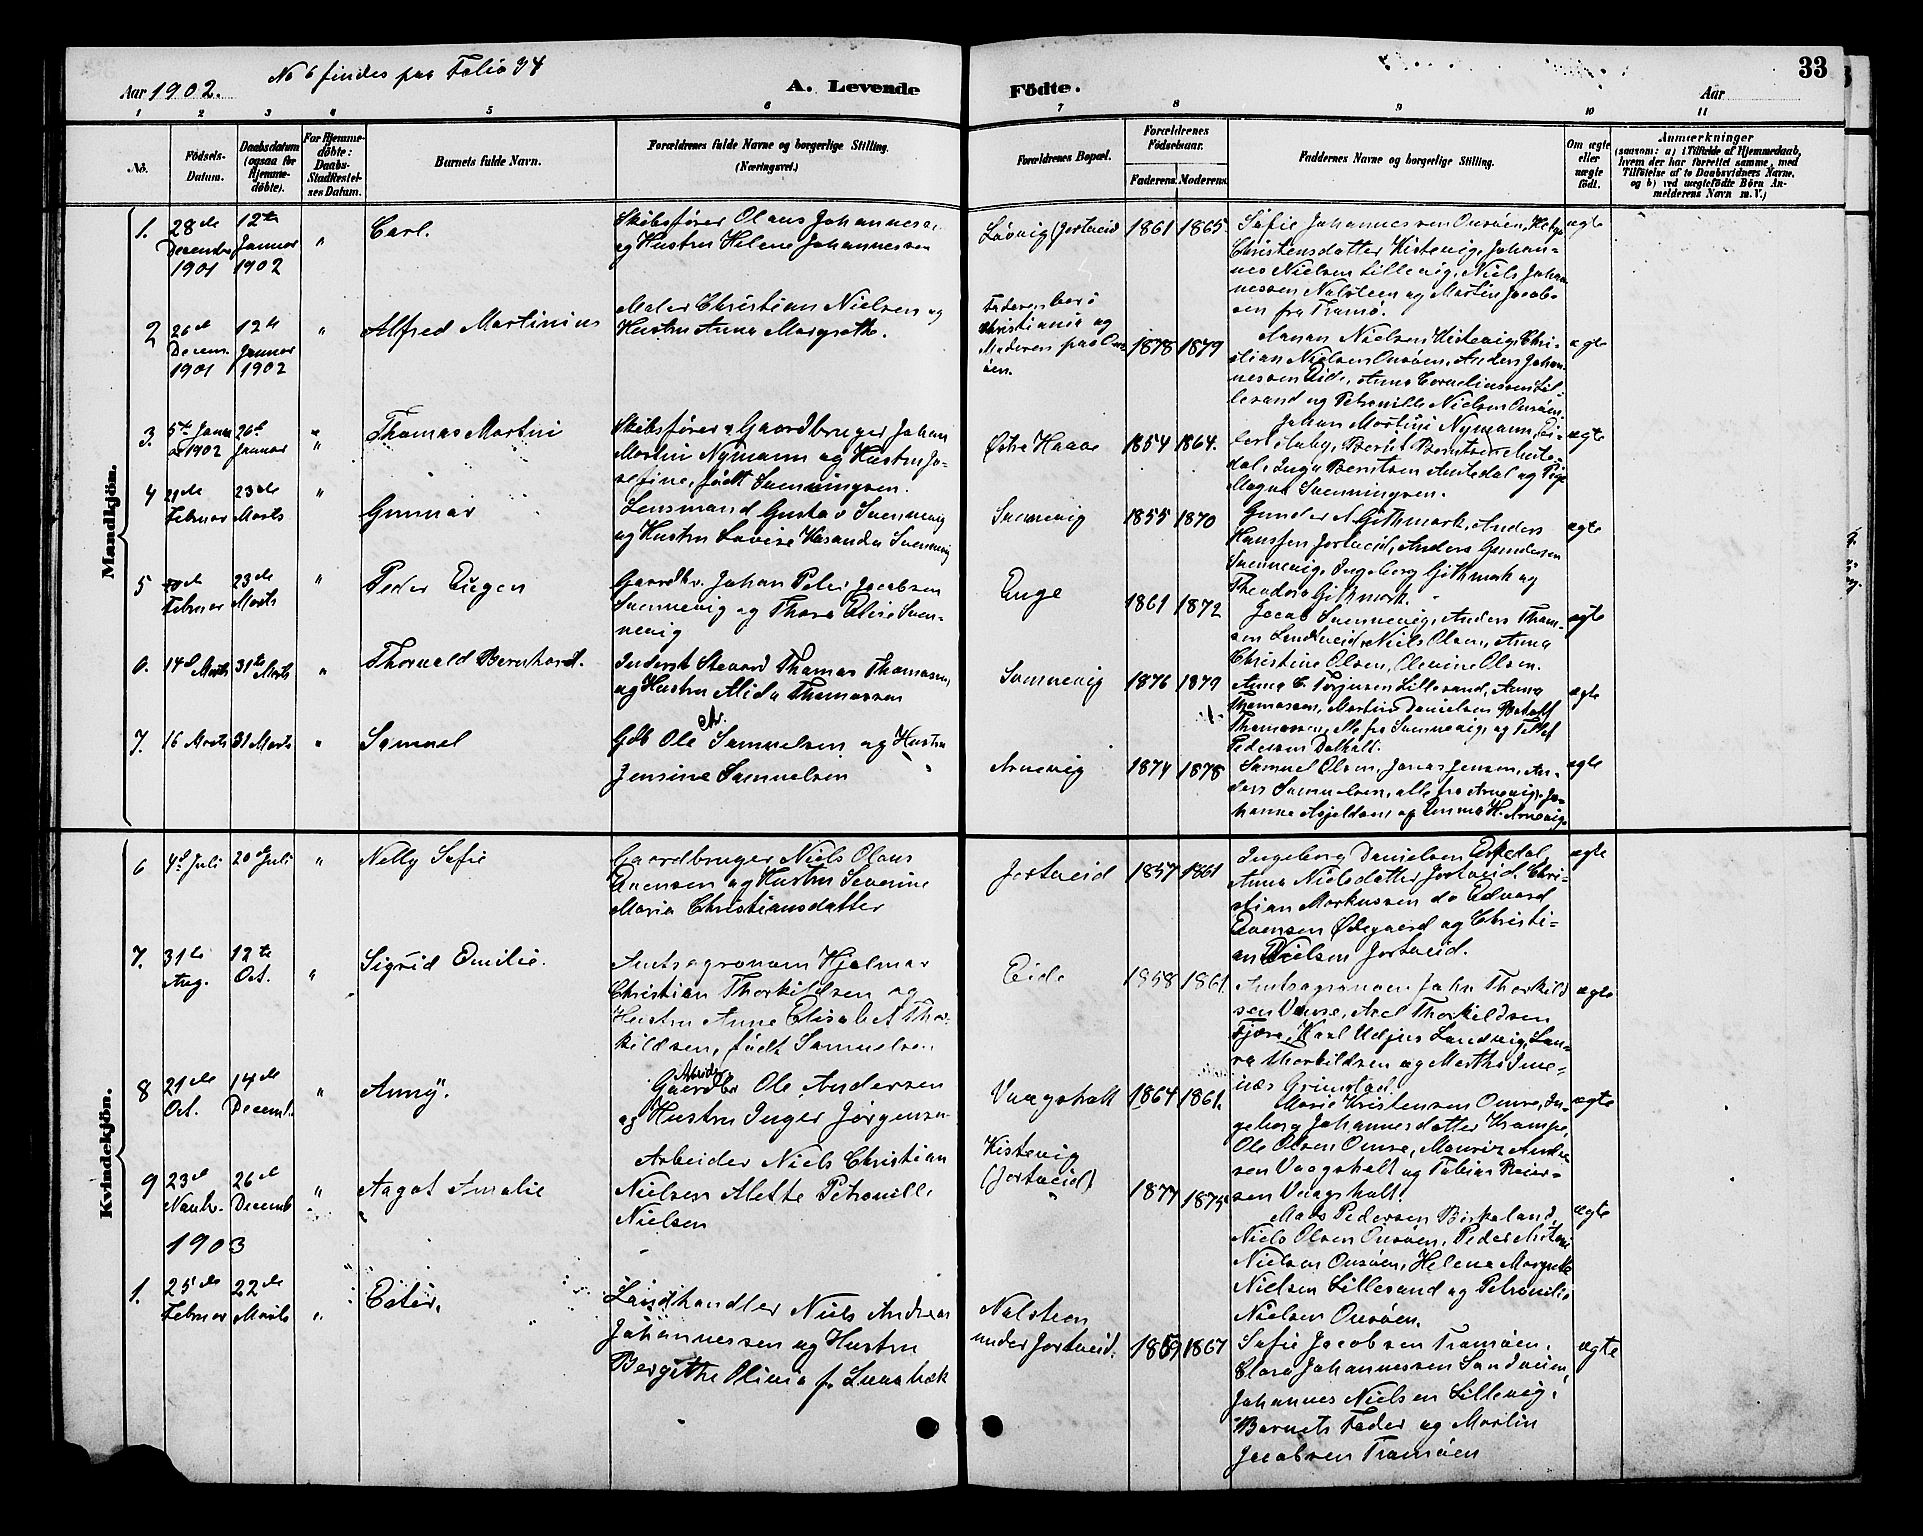 Aar 1902. No 6 findes paa Folio 34
A. Levende Födte.
Aar
33
1 2 3 4 5 6 7 8 9 10 11
No.
Födsels-Datum.
Daabsdatum (ogsaa for Hjemmedöbte).
For Hjemmedöbte: Daabs-Stadfæstelses Datum.
Barnets fulde Navn.
Forældrenes fulde Navne og borgerlige Stilling. (Næringsvei.)
Forældrenes Bopæl.
Forældrenes Födselsaar.
Faderens. Moderens.
Faddernes Navne og borgerlige Stilling.
Om ægte eller uægte födt.
Anmærkninger
(saasom: a) i Tilfælde af Hjemmedaab, hvem der har forrettet samme, med Tilföielse af to Daabsvidners Navne, og b) ved uægtefödte Börn Anmelderens Navn m. V.)
Mandkjön.
1. 28de Decembr 1901 12te Januar 1902 " Carl.
Skibsfører Olaus Johannessen
og Hustru Helene Johannessen
Løvvig (Jortveid 1861 1865
Sofie Johannessen Ousøen, Helga
Christensdatter Kistevig, Johan-
nes Nielsen Lillevig, Niels Johan
nessen Nalsteen og Martin Jacob-
sen fra Tramø.
ægte
2 26de Decem. 1901 12te Januar 1902 " Alfred Martinius
Maler Christian Nielsen og
Hustru Anna Margrethe.
Faderen bor i
Christiania og
Moderen paa Ous
øen.
1878 1879
Johan Nielsen Kistevig, Chri-
stian Nielsen Ousøen, Anders Johan-
nessen Eide, Anna Corneliussen Lil-
lesand og Petronille Nielsen Ousøen.
ægte
3. 5te Janu ar 1902 26de Januar " Thomas Martini
Skibsfører & Gaardbruger Johan
Martini Nymann og Hustru Jo-
sefine, født Svenningsen.
Østre Haave 1854 1864.
Johan Martini Nymann,
Inga Berntsen Amtedal og Pige
Magna Svenningsen.
ægte
4 21de Februar 23de Marts " Gunnar
Lensmand Gustav Svennevig
og Hustru Lovise Kasanda Svennevig
Svennevig 1855 1870
Gunder A. Githmark, Anders
Hanssen Jortveid, Anders Gundersen
Svennevig, Ingeborg Githmark og
Theodora Githmark.
ægte
5 Februar 23de Marts " Peder Eugen
Gaardbr. Johan Peter Jacobsen
Svennevig og Thora Elise Sven-
nevig
Enge 1861 1872
Jacob Svennevig, Anders Thom-
sen Landveid, Niels Olsen, Anna
Christine Olsen, Olevine Olsen.
ægte
6. 14de Marts 31te Marts " Thorvald Bernhard.
Inderst Steward Thomas Thomassen,
og Hustru Alida Thomassen
Svennevig 1876 1879
Anna C. Terjesen Lillesand, Anna
Thomassen, Martin Danielsen
Thomassen, alle fra Svennevig, og Tellef
Pedersen Dalholt.
ægte
7. 16 Marts 31 Marts " Samuel
Gdb Ole Ar. Samuelsen og Hustru
Jensine Samuelsen "
Arnevig 1874 1878
Samuel Olsen, Jonas Jensen, An-
ders Samuelsen, alle fra Arnevig, Jo-
hanne Asjeldsen og Emma H. Arnevig.
ægte
Kvindekjön.
6 4de Juli 20de Juli " Nelly Sofie
Gaardbruger Niels Olaus
Evensen og Hustru Severine
Maria Christiansdatter
Jortveid 1857 1861
Ingeborg Danielsen Eskedal,
Anna Nielsdatter Jortveid, Chri-
stian Markussen do Edvard
Evensen Ødegaard og Christi-
an Nielsen Jortveid.
ægte
7. 31te Aug. 12te Oct. " Sigrid Emilie.
Amtsagronom Hjalmar
Christian Thorkildsen og
Hustru Anne Elisabet Thor-
kildsen, født Samuelsen.
Eide 1858 1861
Amtsagronom John Thorkild
sen Vaure, Axel Thorkildsen
Fjære, Karl Udjus Landvig, Lau-
ra Thorkildsen og Marthe
Grimstad.
ægte
8 21de Oct. 14de Decemb. " Anny.
Arbeider Gaardbr Ole Andersen
og Hustru Inger Jørgensen
Vaagsholt 1864 1861.
Marie Kristensen Omre, In-
geborg Johannesdatter Krampe,
Ole Olsen Omre, Mauritz Andre
sen Vaagsholt og Tobias Reier-
sen Vaagsholt.
ægte
9 23de Novbr. 26de Decemb " Aagot Amalie
Arbeider Niels Christian
Nielsen Alette Petronille
Nielsen
Kistevig
(Jortveid)
1877 1875
Mads Pedersen Birkeland,
Niels Olsen Ousøen, Peder Antoni
Nielsen Ousøen, Helene Margrethe
Nielsen Lillesand og Petronille
Nielsen Ousøen.
ægte
1903
1. 25de Februar 22de Marts " Ester.
Landhandler Niels Andreas
Johannessen og Hustru
Bergithe Olivia f. Lunabæk
Nalsteen
under Jortveid.
1859 1867
Sofie Jacobsen Tramøen,
Clara Johannessen Sandveien,
Johannes Nielsen Lillevig.
Barnets Fader og Martin
Jacobsen Tramøen
ægte